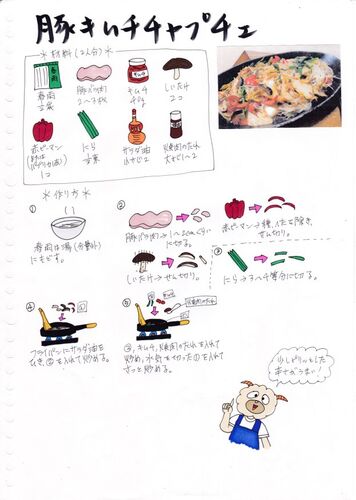 豚キムチチャプチェ
※材料(2人分)※
春雨
豚バラ肉
2〜3枚
キムチ
しいたけ
2コ
赤ピーマン
1コ
にら
サラダ油
小さじ2
焼肉のたれ
※作り方※
①
春雨は湯(分量外)
にもどす。
②
豚バラ肉→1〜2cmくらい
に切る。
赤ピーマン→種、へたを除き、
せん切り。
しいたけ→せん切り。
③
にら→3〜4等分に切る。
④
フライパンにサラダ油を
ひき、②を入れて炒める。
⑤
焼肉のたれ
③、キムチ、焼肉のたれを入れて
炒め、水気を切った①を入れて
さっと炒める。
少しピリッとした
辛さがうまい!